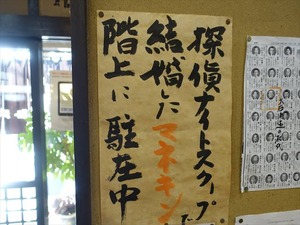 探偵ナイトスクープで
結婚した マネキン
階上に 駐在中